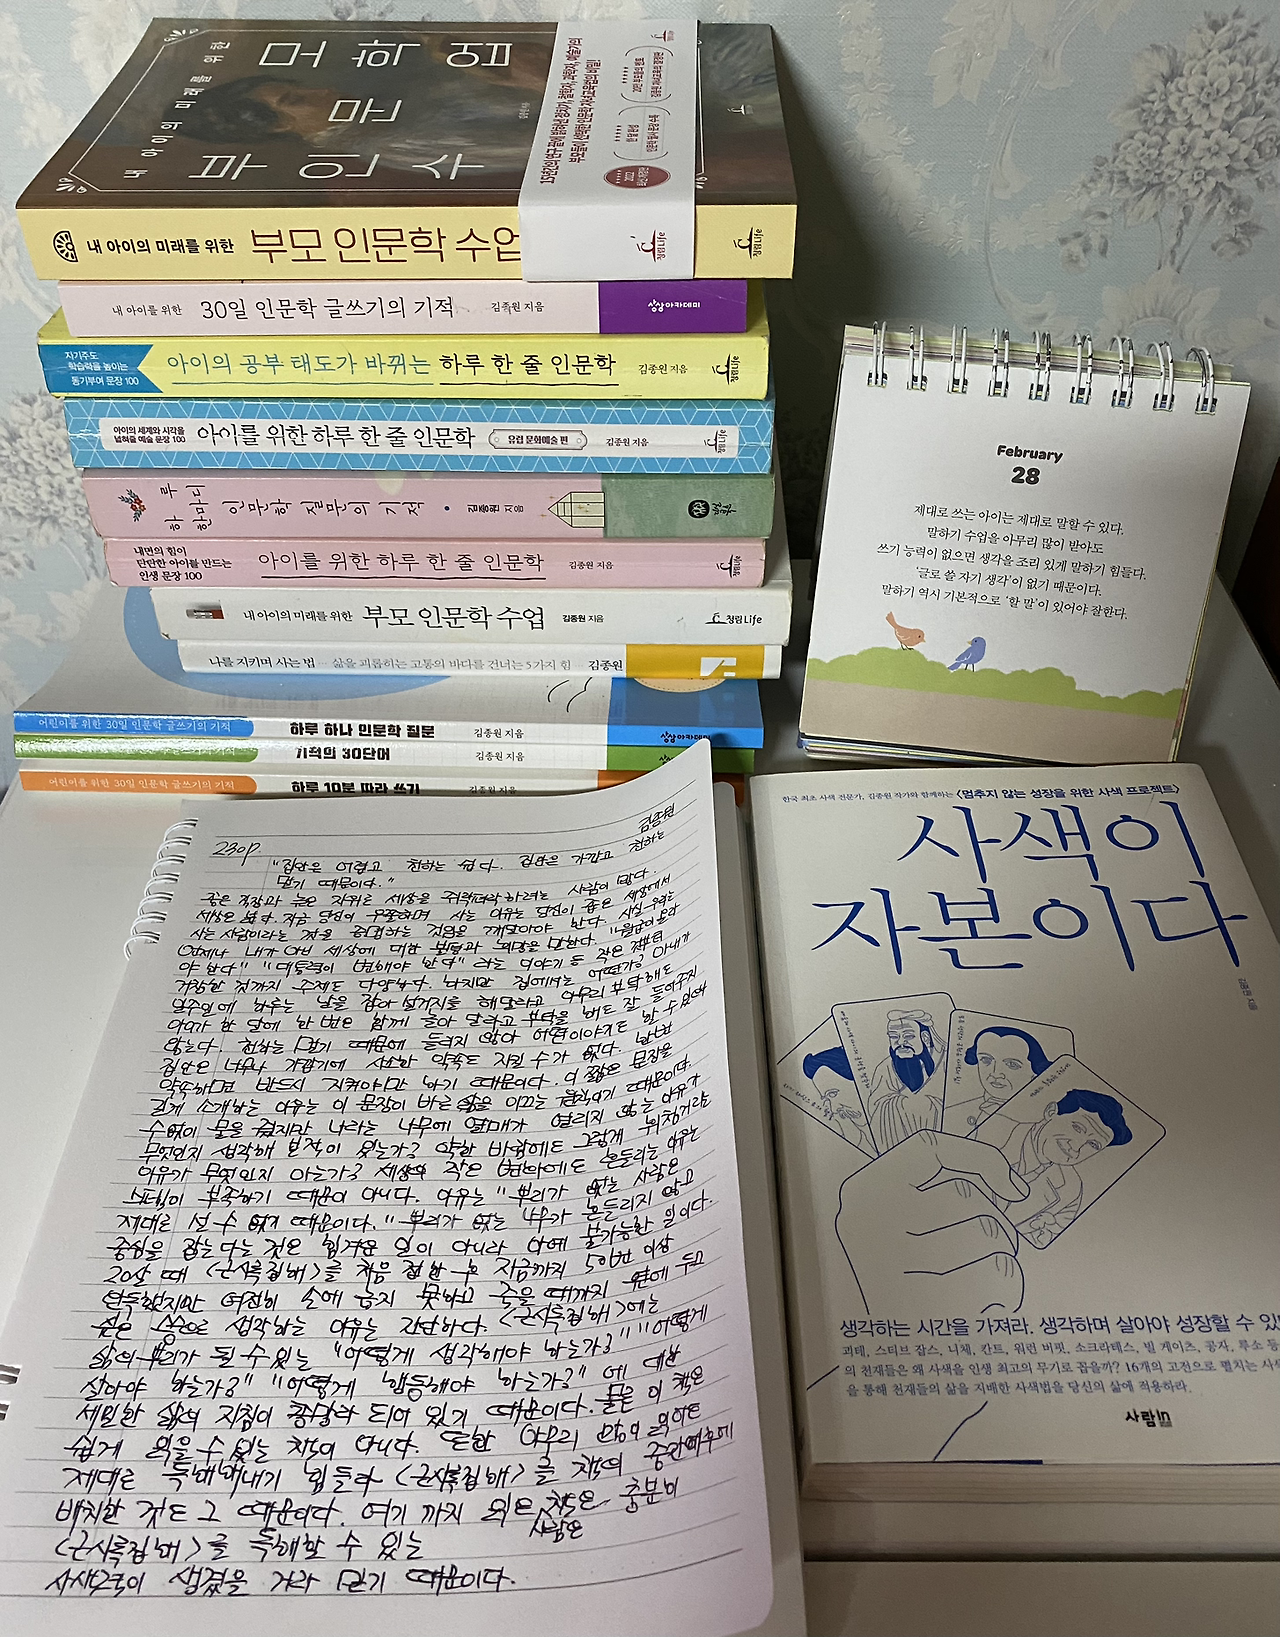 내 아이의 미래를 위한
부모
인문학
수업
15년간의 연구 끝에 밝혀낸 정치가, 철학자, 과학자, 예술가의
부모들이 선택한 인문학 자녀교육법의 비밀!
내 아이의 미래를 위한 부모 인문학 수업
청림Life
청림Life
내 아이를 위한 30일 인문학 글쓰기의 기적 김종원 지음 상상아카데미
자기주도
학습력을 높이는
동기부여 문장 100
아이의 공부 태도가 바뀌는 하루 한 줄 인문학 김종원 지음 청림Life
아이의 세계와 시각을
넓혀줄 예술 문장 100
아이를 위한 하루 한 줄 인문학 유럽 문화예술 편 김종원 지음 청림Life
하루 한마디 인문학 질문의 기적 · 김종원 지음
내면의 힘이
단단한 아이를 만드는
인생 문장 100
아이를 위한 하루 한 줄 인문학 김종원 지음 청림Life
내 아이의 미래를 위한 부모 인문학 수업 김종원 지음 청림Life
나를 지키며 사는 법 삶을 괴롭히는 고통의 바다를 건너는 5가지 힘 김종원
어린이를 위한 30일 인문학 글쓰기의 기적 하루 하나 인문학 질문 김종원 지음 상상아카데미
기적의 30단어 김종원 지음
어린이를 위한 30일 인문학 글쓰기의 기적 하루 10분 따라 쓰기 김종원 지음
February
28
제대로 쓰는 아이는 제대로 말할 수 있다.
말하기 수업을 아무리 많이 받아도
쓰기 능력이 없으면 생각을 조리 있게 말하기 힘들다.
'글로 쓸 자기 생각'이 없기 때문이다.
말하기 역시 기본적으로 '할 말'이 있어야 잘한다.
김종원
230p.
"집안은 어렵고 천하는 쉽다. 집안은 가깝고 천하는
멀기 때문이다."
좋은 직장과 높은 지위로 세상을 쥐락펴락 하려는 사람이 많다.
세상은 넓다. 지금 당신이 우쭐하며 사는 이유는 당신이 좁은 세상에서
사는 사람이라는 것을 증명하는 것임을 깨달아야 한다. 사실 우리는
언제나 내가 아닌 세상에 대한 불평과 희망을 말한다. "월급이 올라
야 한다" "대통령이 변해야 한다" 라는 이야기 등 작은 것부터
거창한 것까지 주제도 다양하다. 하지만 집에서는 어떤가? 아내가
일주일에 하루는 날을 잡아 설거지를 해달라고 아무리 부탁해도
아이가 한 달에 한 번은 함께 놀아 달라고 부탁을 해도 잘 들어주지
않는다. 천하는 멀기 때문에 들리지 않아 어떤 이야기도 할 수 있지만
집안은 너무나 가깝기에 사소한 약속도 지킬 수가 없다. 한번
약속하면 반드시 지켜야만 하기 때문이다. 이 짧은 문장을
길게 소개하는 이유는 이 문장이 바른 삶을 이끄는 원칙이기 때문이다.
수없이 물을 줬지만 나라는 나무에 열매가 열리지 않는 이유가
무엇인지 생각해 본 적이 있는가? 약한 바람에도 그렇게 휘청거리는
이유가 무엇인지 아는가? 세상의 작은 변화에도 흔들리는 이유는
노력이 부족하기 때문이 아니다. 이유는 "뿌리가 없는 사람은
제대로 설 수 없기 때문이다." 뿌리가 없는 나무가 흔들리지 않고
중심을 잡는다는 것은 힘겨운 일이 아니라 아예 불가능한 일이다.
20살 때 <근사록집해>를 처음 접한 후 지금까지 50번 이상
탐독했지만 여전히 손에 놓지 못하고 죽을 때까지 옆에 두고
싶은 스승으로 생각하는 이유는 간단하다. <근사록집해>에는
삶의 뿌리가 될 수 있는 "어떻게 생각해야 하는가?" "어떻게
살아야 하는가?" "어떻게 행동해야 하는가?" 에 대한
세밀한 삶의 지침이 총망라 되어 있기 때문이다. 물론 이 책은
쉽게 읽을 수 있는 책이 아니다. 또한 아무리 많이 읽어도
제대로 독해해내기 힘들다 <근사록집해>를 책의 중간 이후에
배치한 것도 그 때문이다. 여기 까지 읽은 사람은 충분히
<근사록집해>를 독해할 수 있는
사색근육이 생겼을 거라 믿기 때문이다.
한국 최초 사색 전문가, 김종원 작가와 함께하는 <멈추지 않는 성장을 위한 사색 프로젝트>
사색이
자본이다
김종원 지음
생각하는 시간을 가져라. 생각하며 살아야 성장할 수 있
괴테, 스티브 잡스, 니체, 칸트, 워런 버핏, 소크라테스, 빌 게이츠, 공자, 루소 등
의 천재들은 왜 사색을 인생 최고의 무기로 꼽을까? 16개의 고전으로 펼치는 사색
을 통해 천재들의 삶을 지배한 사색법을 당신의 삶에 적용하라.
사람in